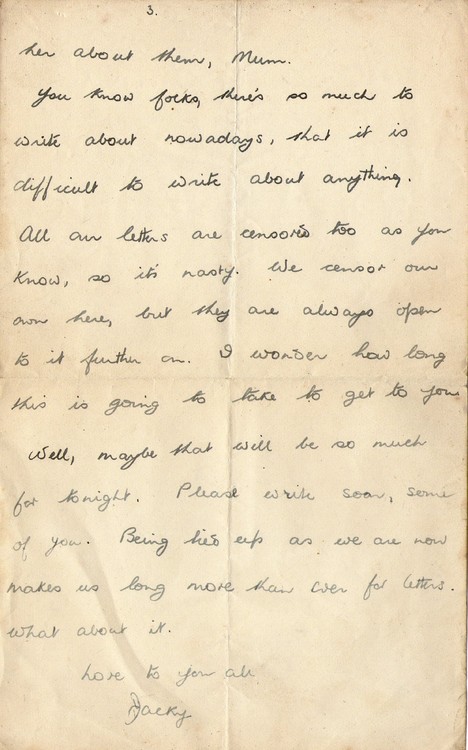 3.
her about them, Mum.
You know folks, there's so much to
write about nowadays, that it is
difficult to write about anything.
All our letters are censored too as you
know, so it's nasty. We censor our
own here, but they are always open
to it further on. I wonder how long
this is going to take to get to you.
Well, maybe that will be so much
for tonight. Please write soon, some
of you. Being tied up as we are now
makes us long more than ever for letters.
What about it.
Love to you all
Jacky